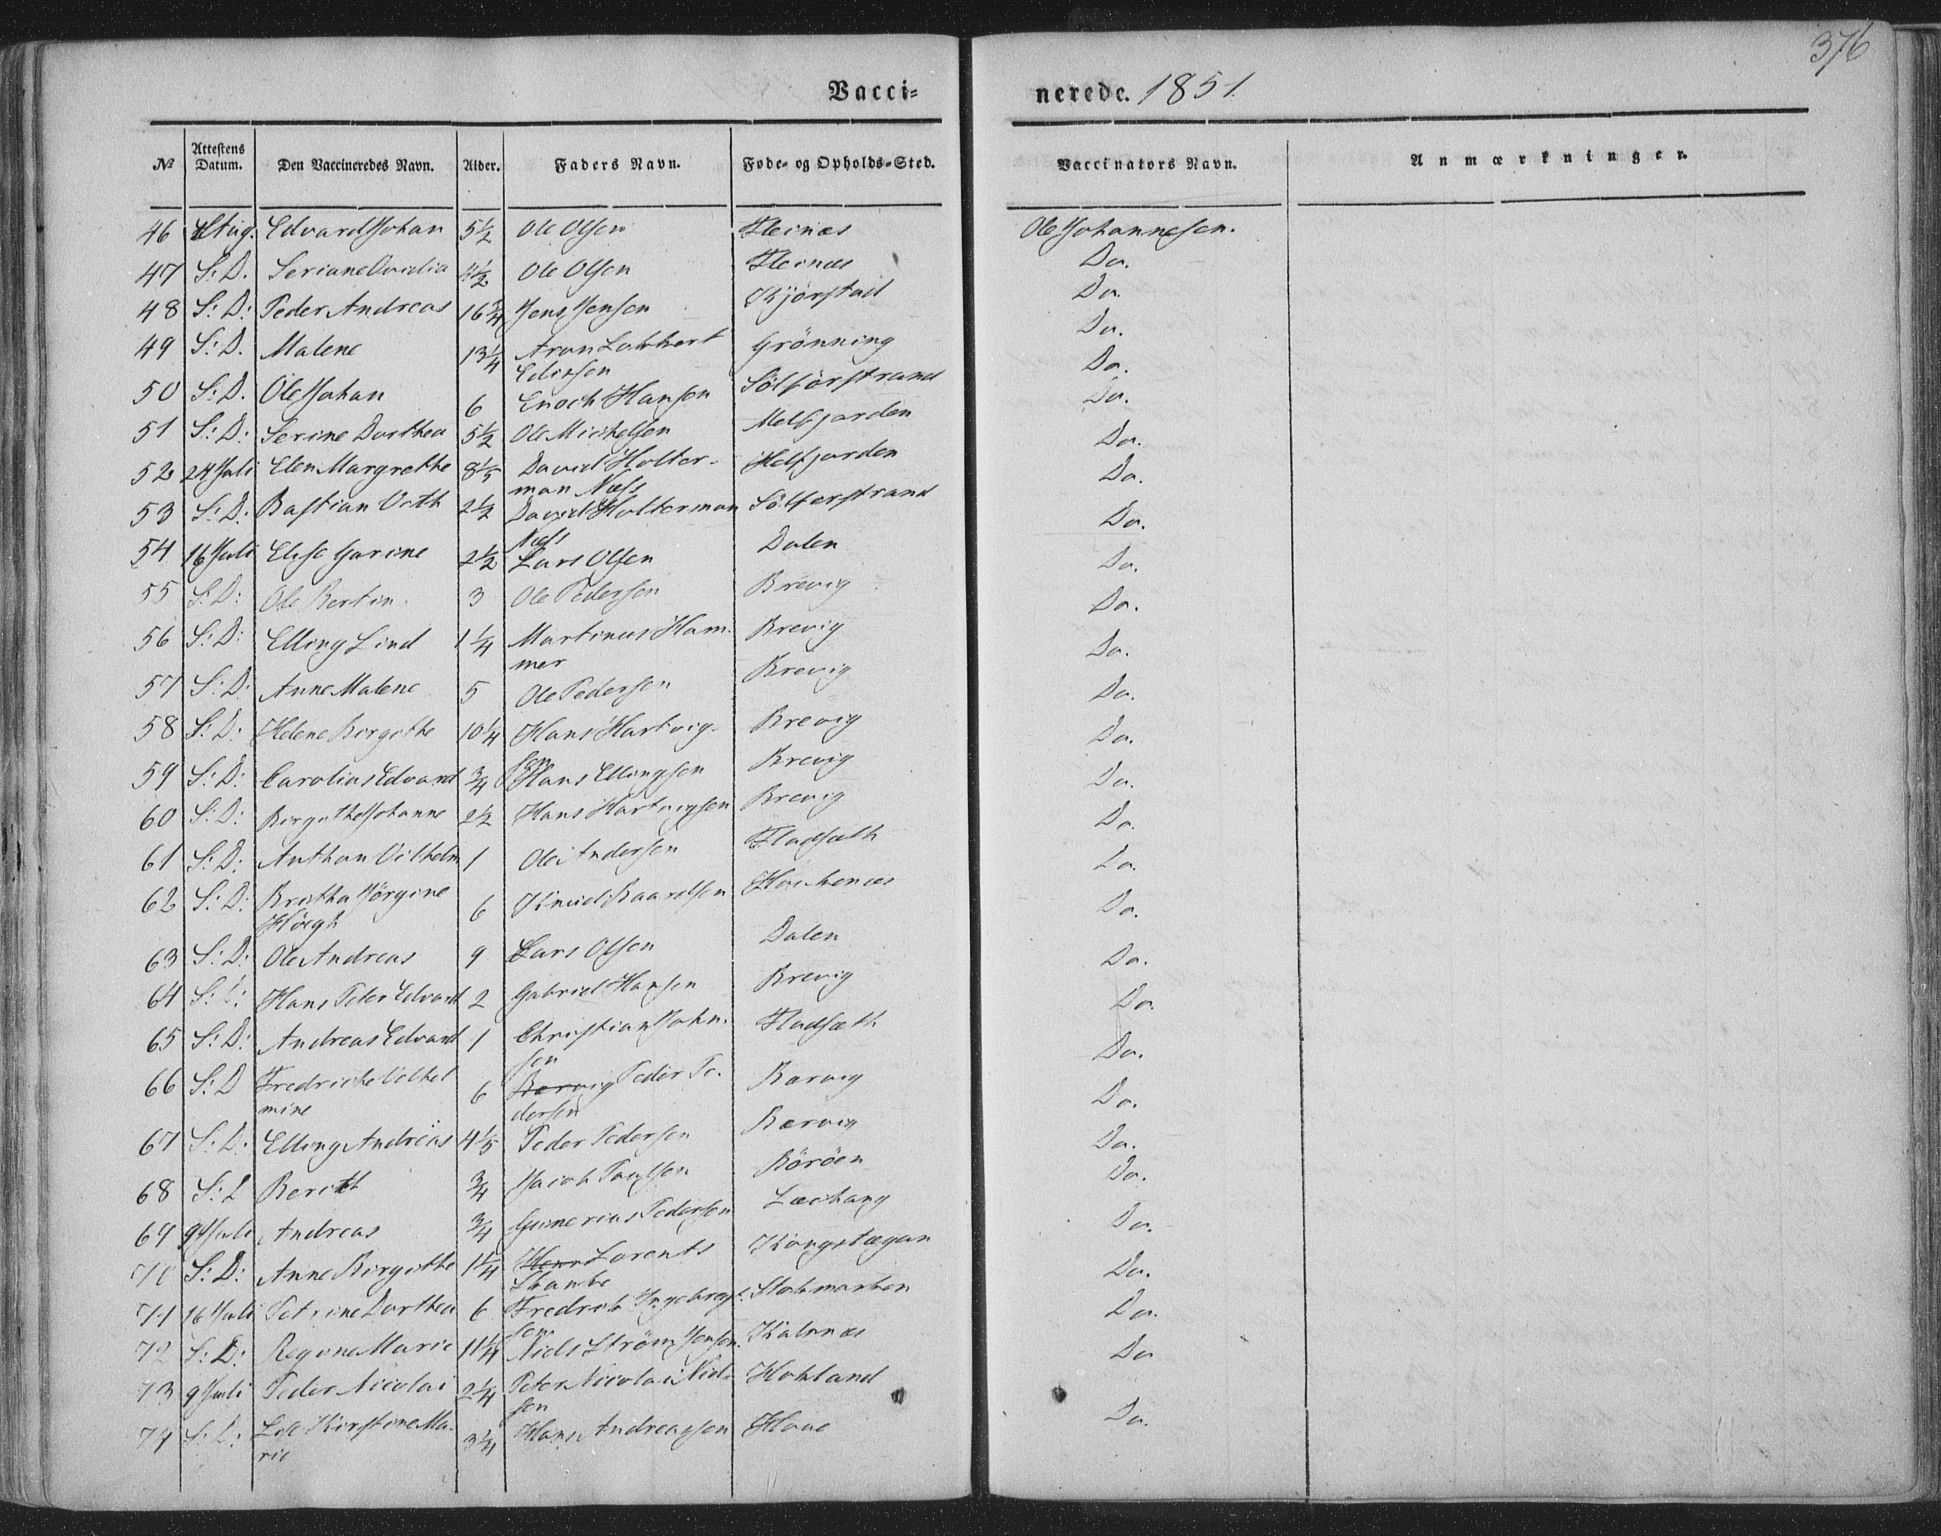 376
Vacci-
nerede. 1851.
№ Attestens Datum. Den Vaccineredes Navn. Alder. Faders Navn. Føde- og Opholds-Sted. Vaccinators Navn. Anmærkninger.
46 Aug. Edvard Johan 5½ Ole Olsen Fleinæs Ole Johannesen.
47 S: D. Seriane Ovidia ½ Ole Olsen Fleinæs Do.
48 S: D: Peder Andreas 16¾ Jens Jensen Kjørstad Do.
49 S: D. Malene 13¼ Aron Grönning Do.
50 S: D. Ole Johan 6 Enoch Hansen Do.
51 S: D: Serine Dorthea 5½ Ole Michelsen Melfjorden Do.
52 24 Juli Elen Margrethe 8⅓ David Holter- Melfjorden Do.
man Næss
53 S: D: Bastian Veth 2½ David Holterman Do.
Næss
54 16 Juli Else Garine 2½ Lars Olsen Dalen Do.
55 S: D: Ole Bertin 3 Ole Pedersen Brevig Do.
56 S: D: Elling Lind 1¼ Martinus Ham- Brevig Do.
mer
57 S: D: Anne Malene 5 Ole Pedersen Brevig Do.
58 S: D: Helene Birgithe 10¼ Hans Hartvig- Brevig Do.
sen
59 S: D: Carolius Edvard ¾ Hans Ellingsen Brevig Do.
60 S: D: Birgithe Johanne 2½ Hans Hartvigsen Brevig Do.
61 S: D: Anthon Vilhelm 1 Ole Andersen Fladsæth Do.
62 S: D: Jörgine 6 Knud Baardsen Do.
Höegh
63 S: D: Ole Andreas 9 Lars Olsen Dalen Do.
64 S: D: Hans Peter Edvard 2 Gabriel Hansen Brevig Do.
65 S: D: Andreas Edvard 1 Christian John- Fladsæth Do.
sen
66 S: D Fredricke Vilhel 6 Bærvig Peder Pe- Barvig Do.
mine dersen
67 S: D: Elling Andreas 4⅓ Peder Pedersen Bærvig Do.
68 S: D Berith ¾ Jacob Paulsen Böröen Do.
69 9 Juli Andreas ¾ Gunerius Pedersen Do.
70 S: D: Anne Birgithe 1¼ Lorents Do.
71 16 Juli Petrine Dorthea 6 Fredrik Ingebregt- Stokmarken Do.
sen
72 S: D: Regine Marie 11¼ Niels Ström Jensen Kalsnæs Do
73 9 Juli Peder Nicolai 2¼ Peter Nicolai Niel- Hokland
sen
74 S: D: Kirstine Ma- 3¼ Hans Andreassen Do.
rie